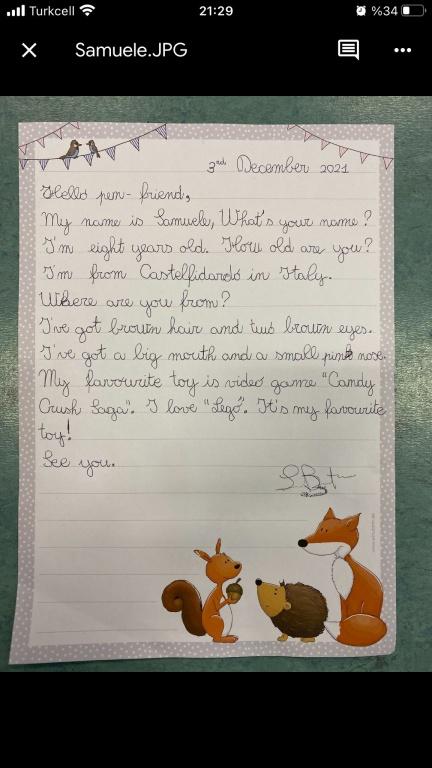 Turkcell 21:29 %34
Samuele.JPG
3rd December 2021
Hello pen-friend,
My name is Samuele, What's your name?
I'm eight years old. How old are you?
I'm from Castelfidardo in Italy.
Where are you from?
I've got brown hair and two brown eyes.
I've got a big mouth and a small pink nose.
My favourite toy is video game "Candy
Crush Saga". I love "Lego". It's my favourite
toy!
See you.